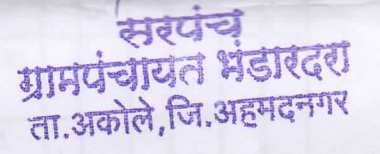 सरपंच
ग्रामपंचायत भंडारदरा
ता.अकोले,जि.अहमदनगर